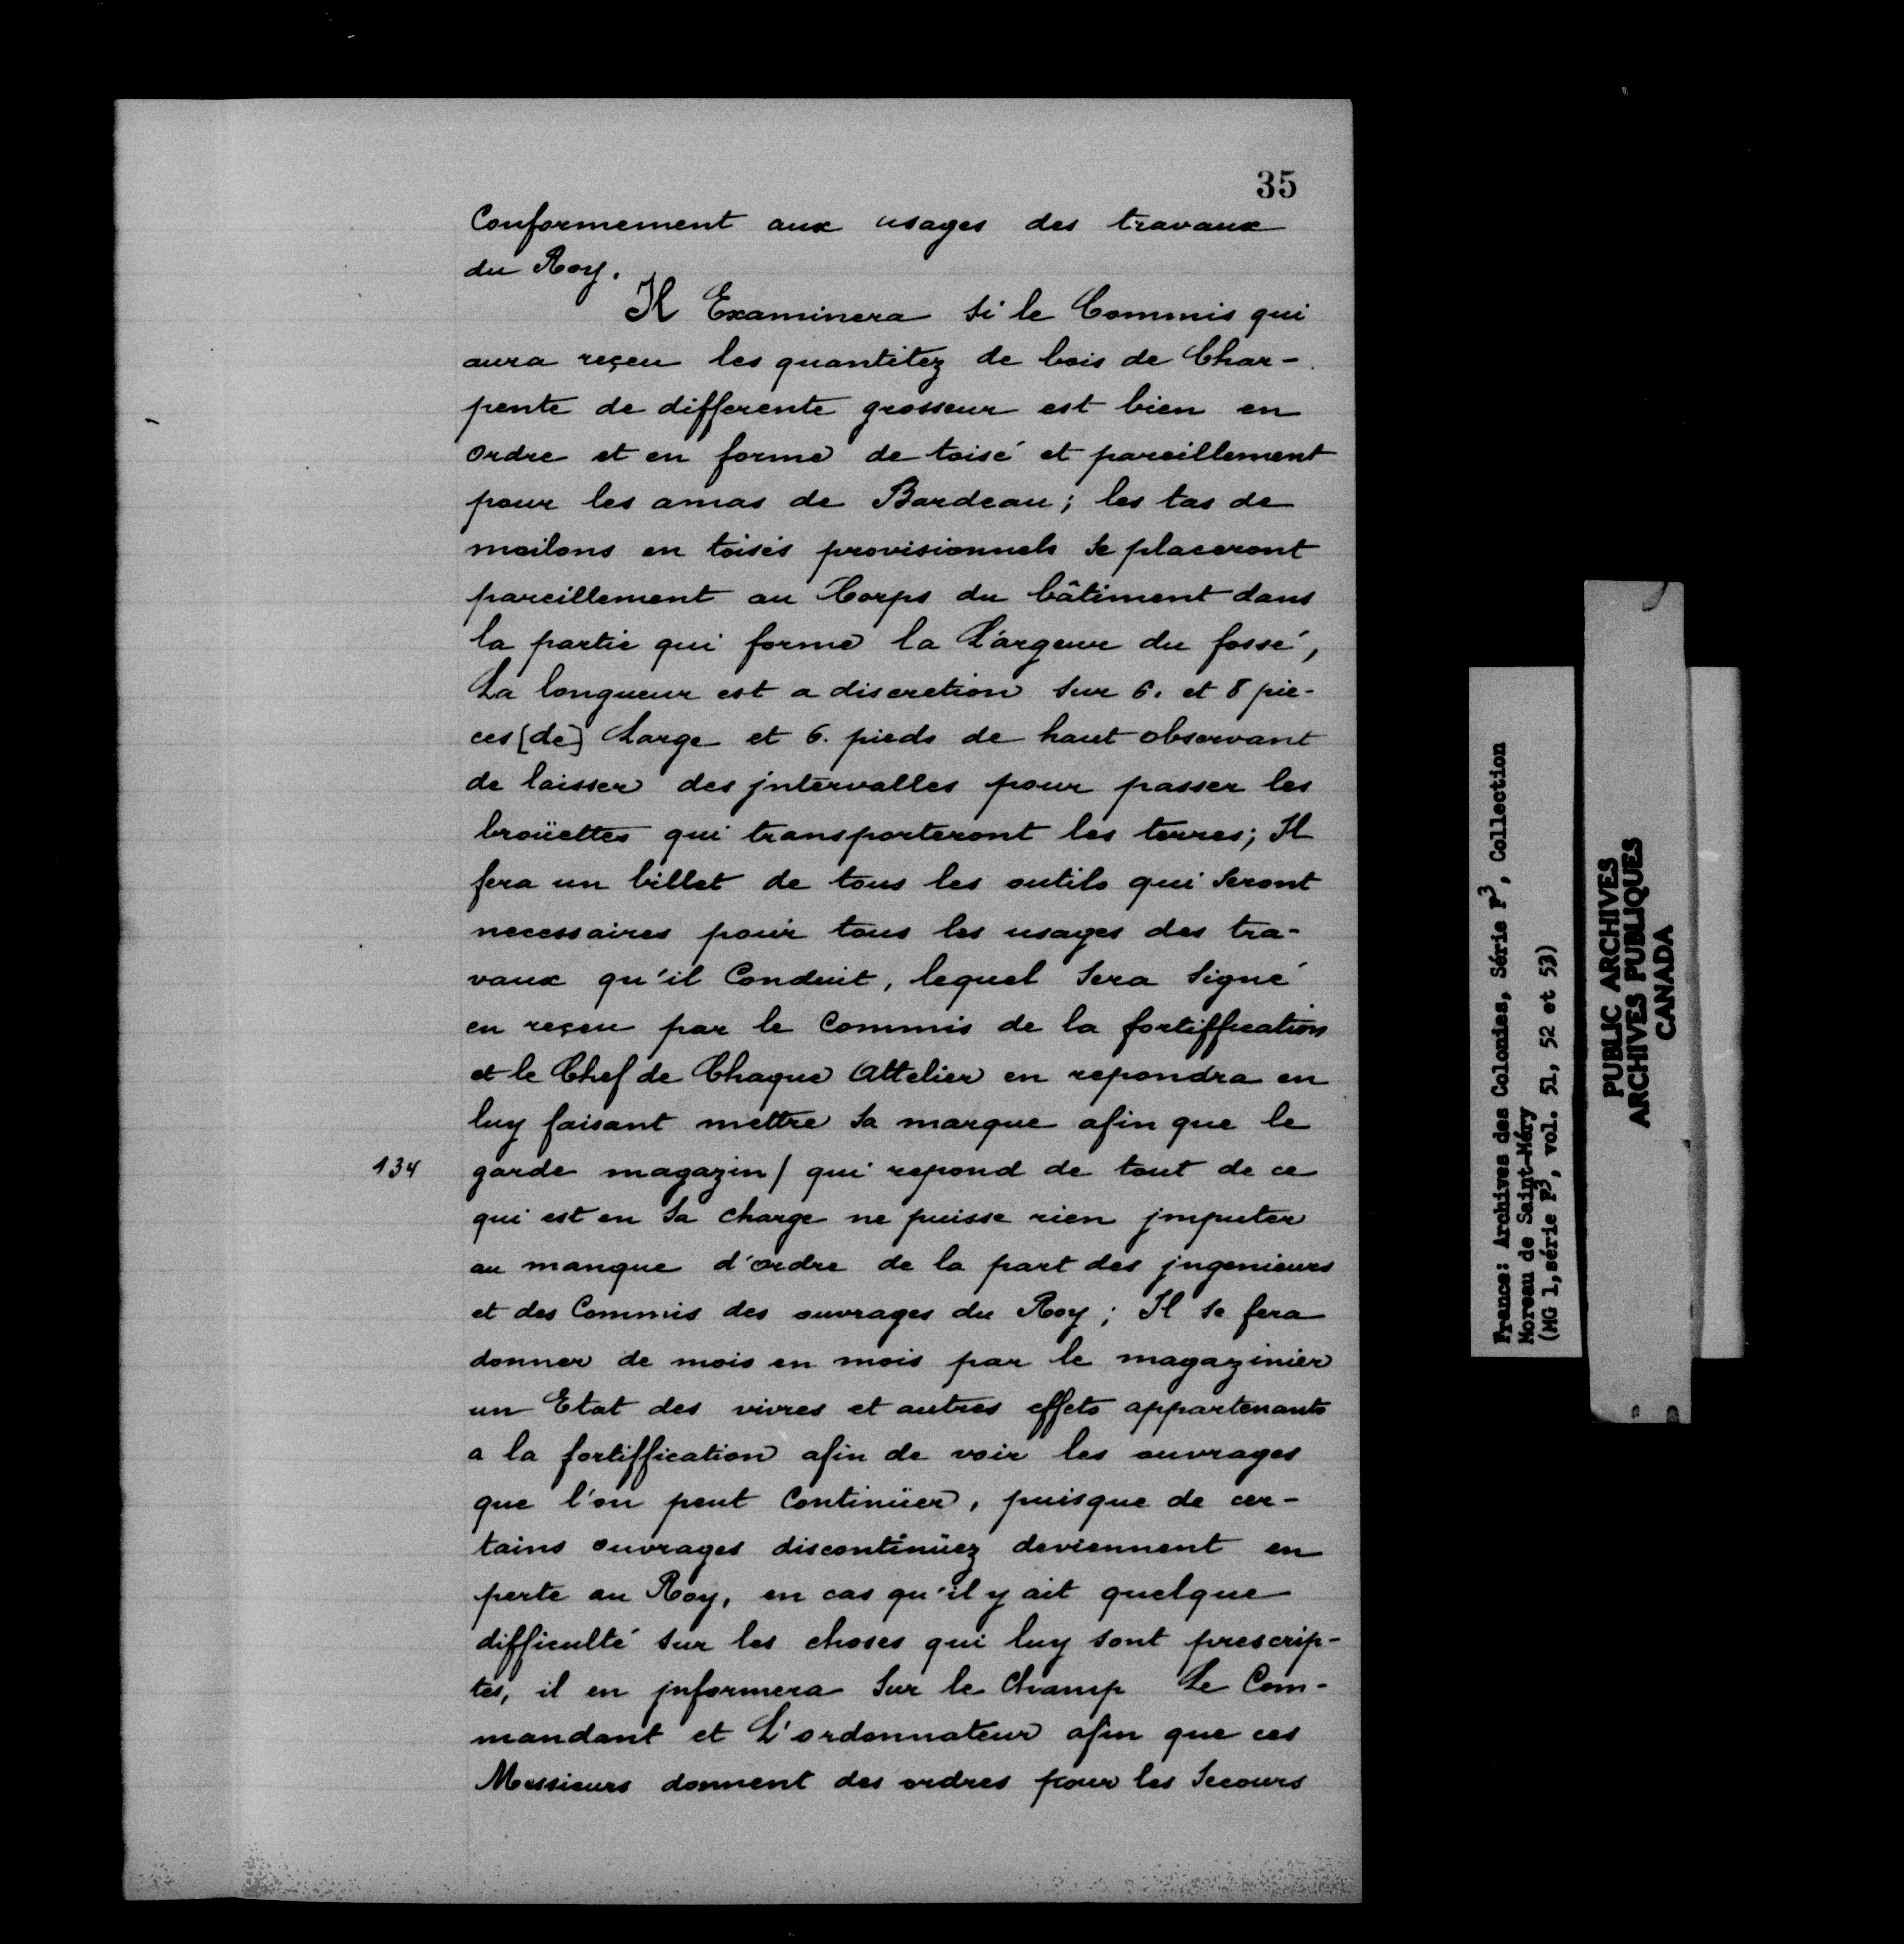 35
Conformement aux usages des travaux
du Roy.
Il Examinera si le Commis qui
aura reçeu les quantitez de bois de Char-
pente de differente grosseur est bien en
ordre et en forme de toisé et pareillement
pour les amas de Bardeau; les tas de
moilons en toisés provisionnels se placeront
pareillement au Corps du bâtiment dans
la partie qui forme la Largeur du fossé,
La longueur est a discretion sur 6. et 8 pie-
ces [de] Large et 6. pieds de haut observant
de laisser des jntervalles pour passer les
broüettes qui transporteront les terres; Il
fera un billet de tous les outils qui seront
necessaires pour tous les usages des tra-
vaux qu'il Conduit, lequel sera signé
en reçeu par le Commis de la fortiffication
et le Chef de Chaque Attelier en repondra en
luy faisant mettre sa marque afin que le
134 garde magazin/ qui repond de tout de ce
qui est en sa charge ne puisse rien jmputer
au manque d'ordre de la part des jngenieurs
et des Commis des ouvrages du Roy; Il se fera
donner de mois en mois par le magazinier
un Etat des vivres et autres effets appartenants
a la fortiffication afin de voir les ouvrages
que l'on peut Continüer, puisque de cer-
tains ouvrages discontinüez deviennent en
perte au Roy, en cas qu'il y ait quelque
difficulté sur les choses qui luy sont prescrip-
tes, il en jnformera sur le Champ Le Com-
mandant et L'ordonnateur afin que ces
Messieurs donnent des ordres pour les secours
France: Archives des Colonies, Série F3, Collection
Moreau de Saint-Méry
(MG 1, série F3, vol. 51, 52 et 53)
PUBLIC ARCHIVES
ARCHIVES PUBLIQUES
CANADA